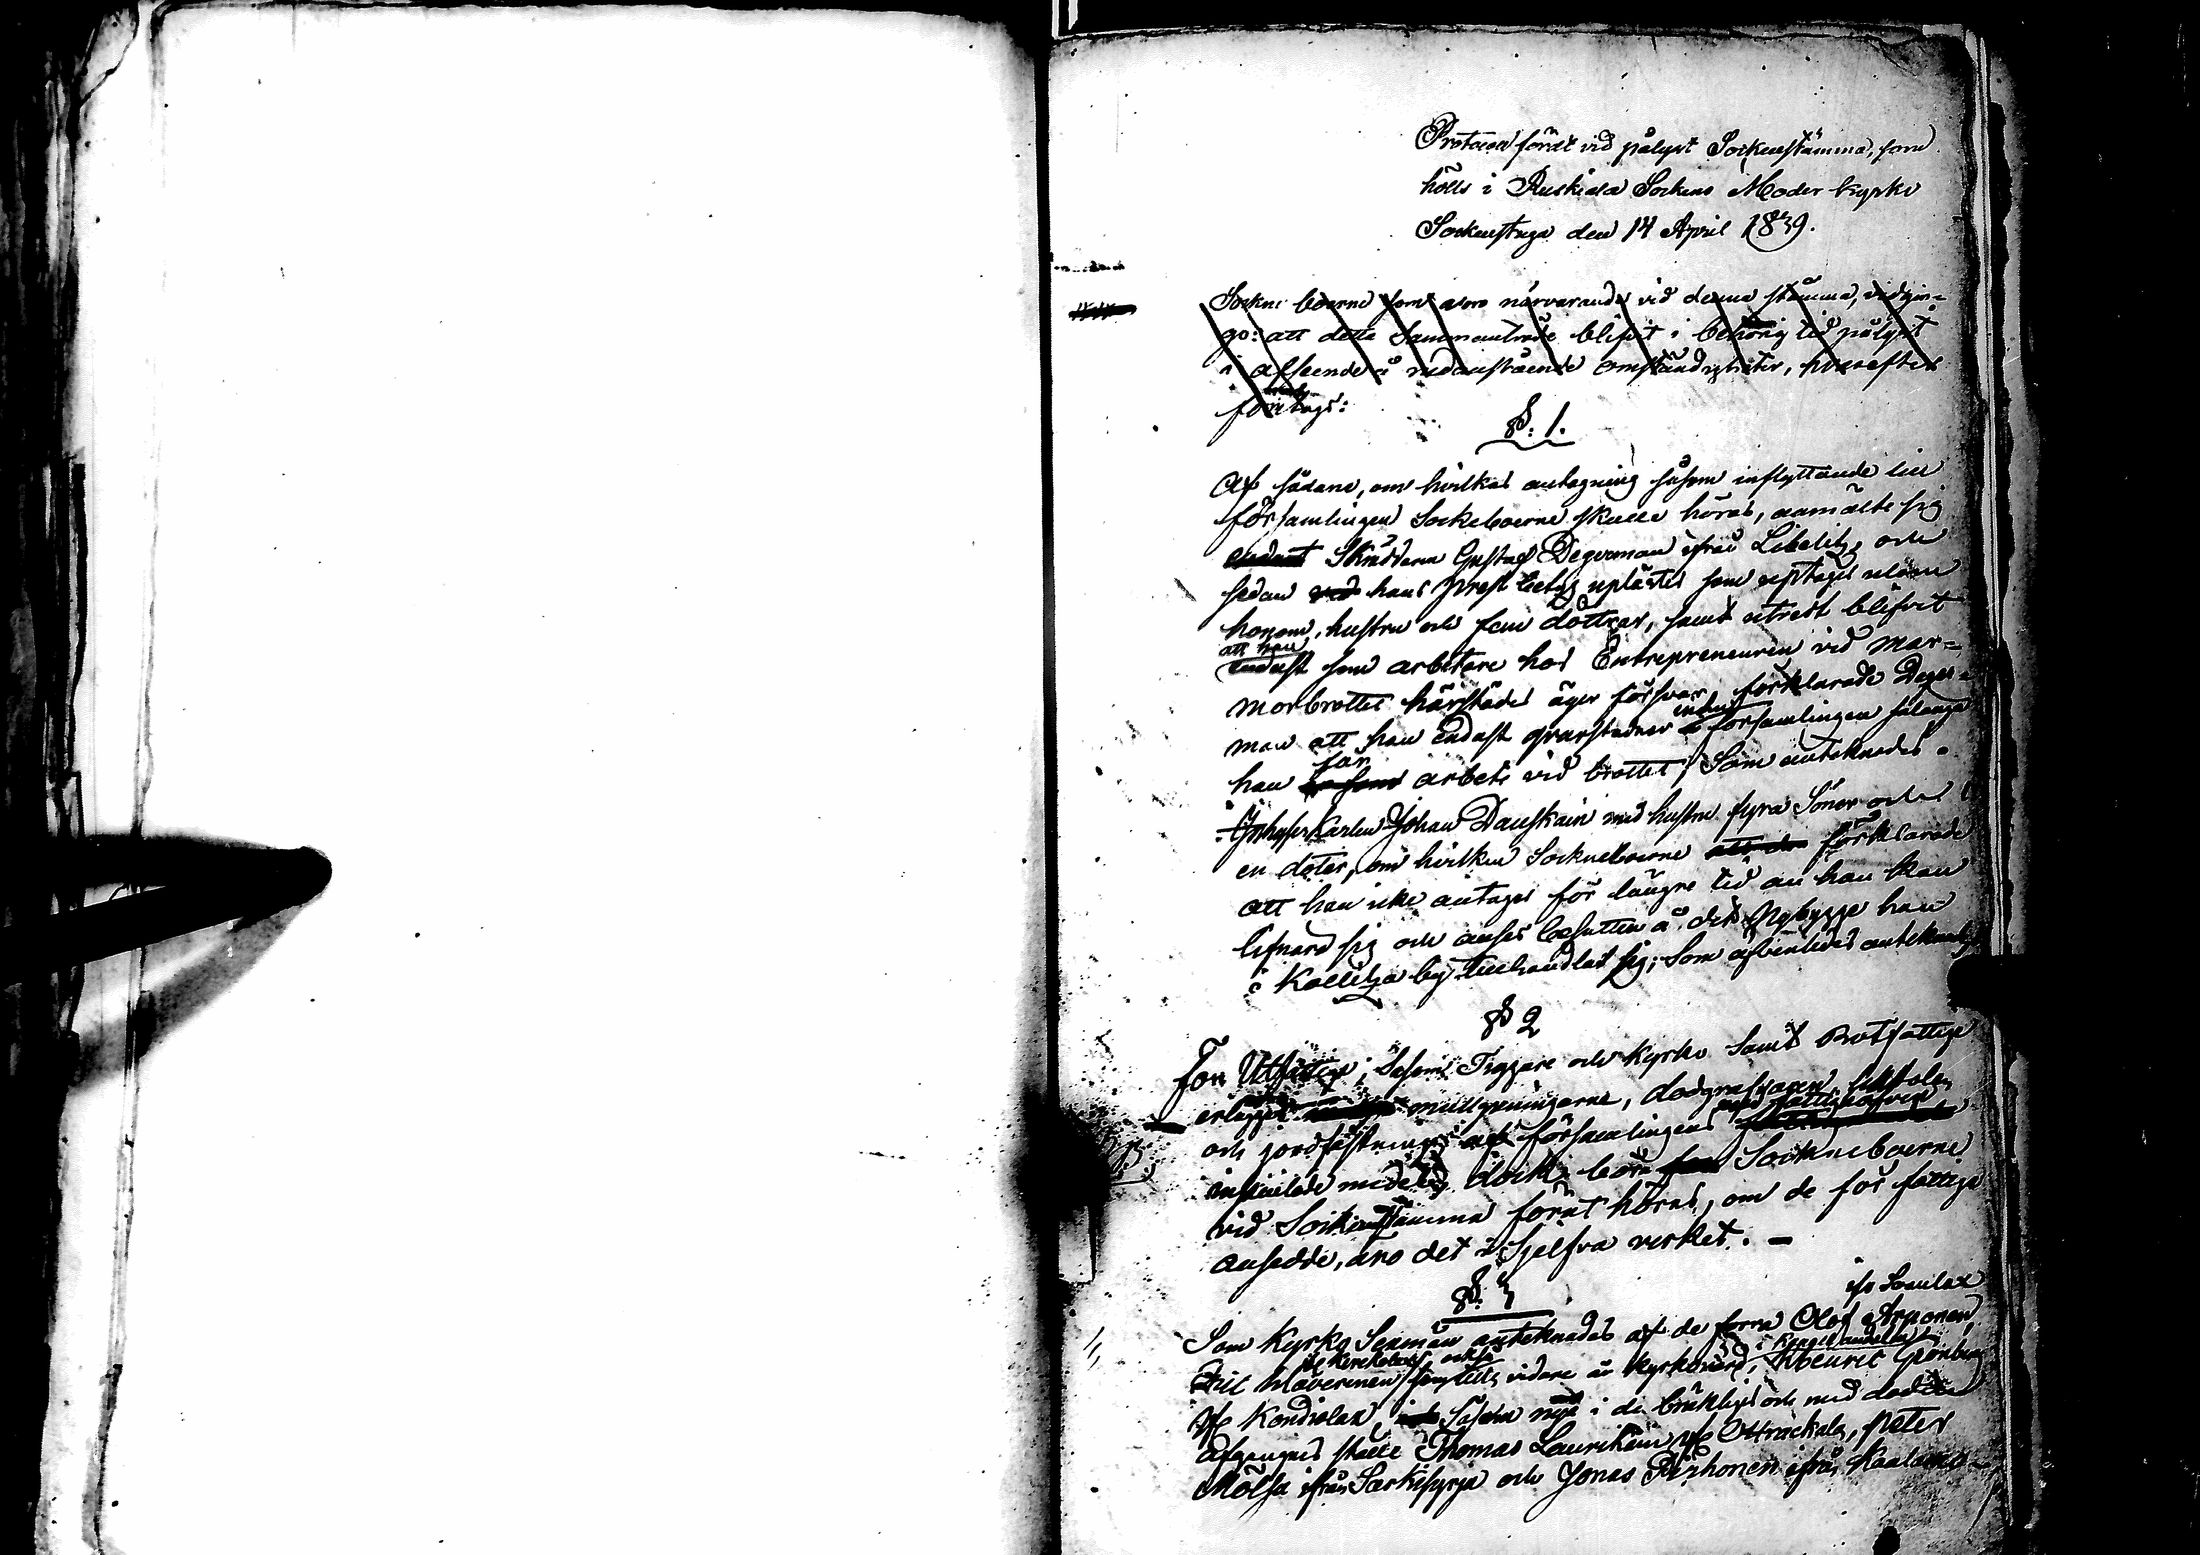 Protocoll fördt vid pålyst Sockenstämma, som
hölls i Ruskiala Sockens Moder kyrko
Sockenstuga den 14 April 1839.
Sockne boerne som voro närvarande vid denna stämma, vidgin-
go: att detta Sammanträde blifvit i behörig tid pålyst
i afseende å nedanstående omständigheter, hvarefter
företogs:
§: 1.
Af sådane, om hvilkas antagning såsom inflyttande till
församlingen Sockneboerne skulle höras, anmälte sig
endast Skräddaren Gustaf Degerman ifrån Libelitz, och
sedan hans prest betyg uplästes som uptager utom
honom, hustru och fem döttrar, samt utredt blifvit
att han
endast som arbetare hos Entrepreneuren vid mar-
morbrottet härstädes äger försvar, förklarade Deger-
man att han endast qvarstadnar inom församlingen sålänge
han får arbete vid brottet; Som anteknades.
Inhyses Karlen Johan Danskain med hustru fyra Söner och
en doter, om hvilken Sockneboerne förklarade
att han icke antages för längre tid än han kan
lifnära sig och anses besutten å det Nybygge han
i Kollitza by tillhandlat sig; Som äfvenledes anteknades
§ 2
För Utfattige; Såsom Tiggare och kyrko samt Rotfattige
erlägges mullpenningarne, dödgrafvaren tillkolen
och jordfästning af församlingens fattighafver
insamlade medel, dock böra Sockneboerne
vid Sockenstämma förut höras, om de för fattiga
ansedde, äro det i Sjelfva verket. —
§. 3
ifr Soanlax
Som Kyrko Sexmän anteknades af de forna Olof Arponen,
Till Haverinen ifr Kirkolax, och vidare är kyrkovärd, Henric Grönberg
ifr Kondielax, Såsom nya i de bräkliges och med döden
afgangnes ställe Thomas Laurikain ifr Otrackala, Peter
Mölsa ifrån Särkisyrja och Jonas Pirhonen ifrån Kaalamo.